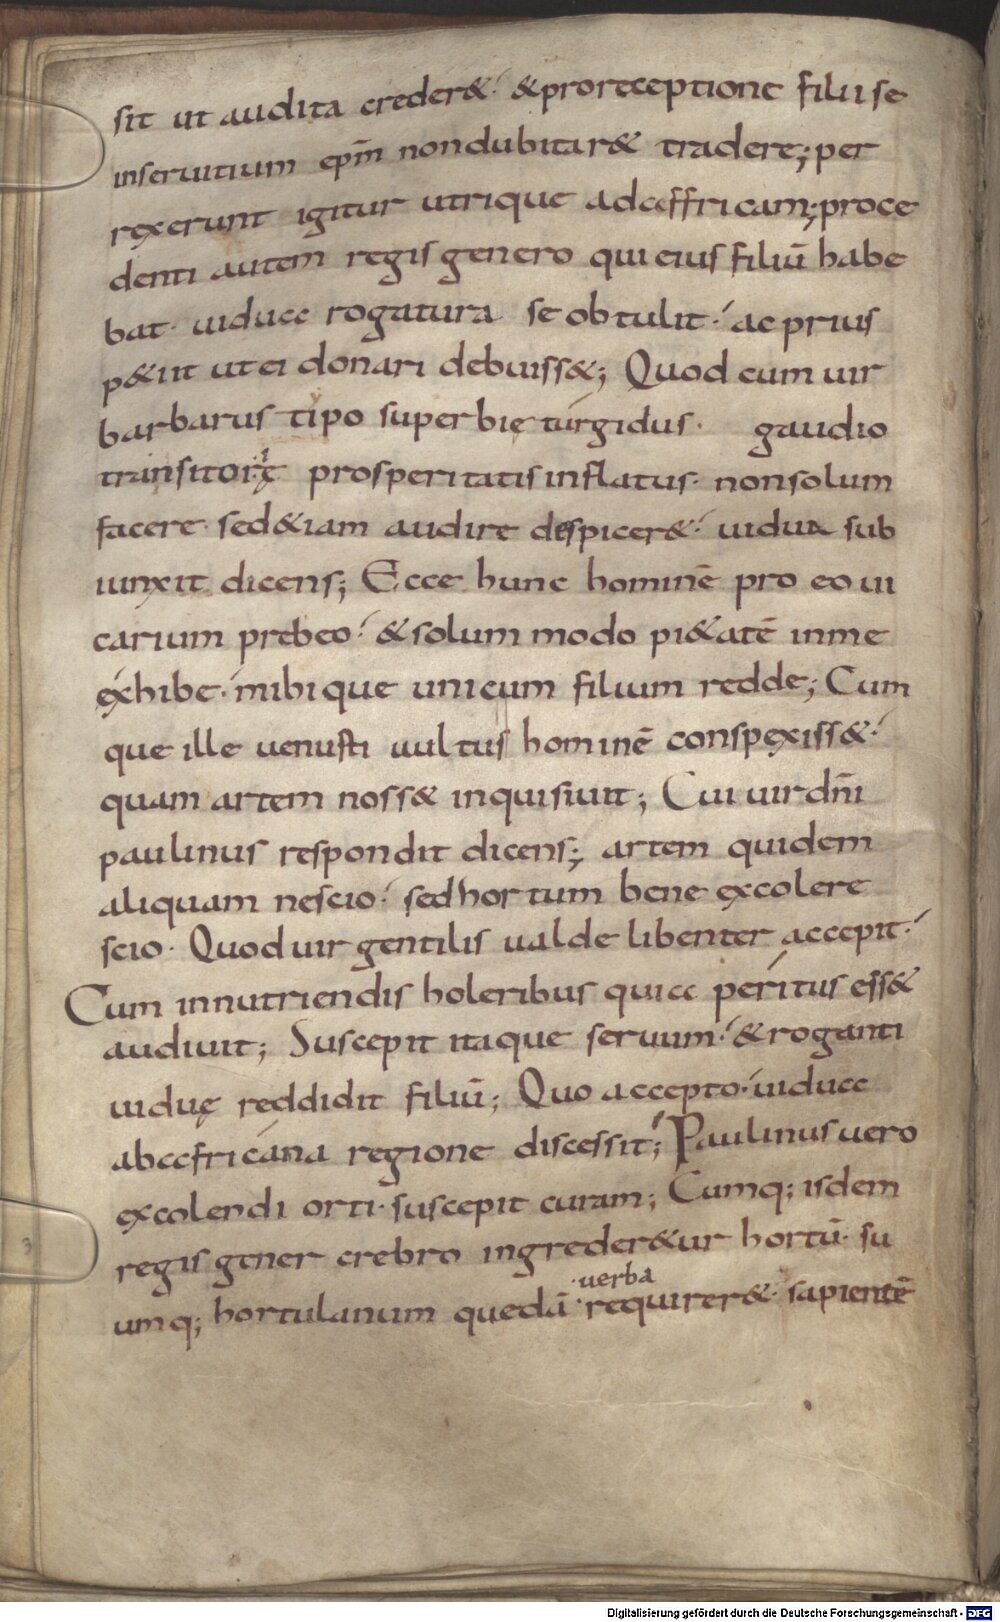 sit ut audita creder&· &proreceptione filii se
inseruitium ep̄m nondubitar& tradere; per
rexerunt igitur utrique adaffricam; proce
denti autem regis genero qui eius filiū habe
bat· uidua rogatura se obtulit· ac prius
p&iit ut ei donari debuiss&; Quod cum uir
barbarus tipo superbię turgidus· gaudio
transitorię prosperitatis inflatus· nonsolum
facere· sed&iam audire despicer&· uidua sub
iunxit dicens; Ecce hunc hominē pro eo ui
carium prebeo· &solum modo pi&atē inme
exhibe· mihique unicum filium redde; Cum
que ille uenusti uultus hominē conspexiss&·
quam artem noss& inquisiuit; Cui uir dn̄i
paulinus respondit dicens; artem quidem
aliquam nescio· sed hortum bene excolere
scio· Quod uir gentilis ualde libenter accepit·
Cum innutriendis holeribus quia peritus ess&
audiuit; Suscepit itaque seruum· &roganti
uiduę reddidit filiū; Quo accepto· uidua
abaffricana regione discessit; Paulinus uero
excolendi orti· suscepit curam; Cumq; isdem
regis gener crebro ingreder&ur hortū· su
umq; hortulanum quedā ·uerba requirer&· sapientē
Digitalisierung gefördert durch die Deutsche Forschungsgemeinschaft - DFG